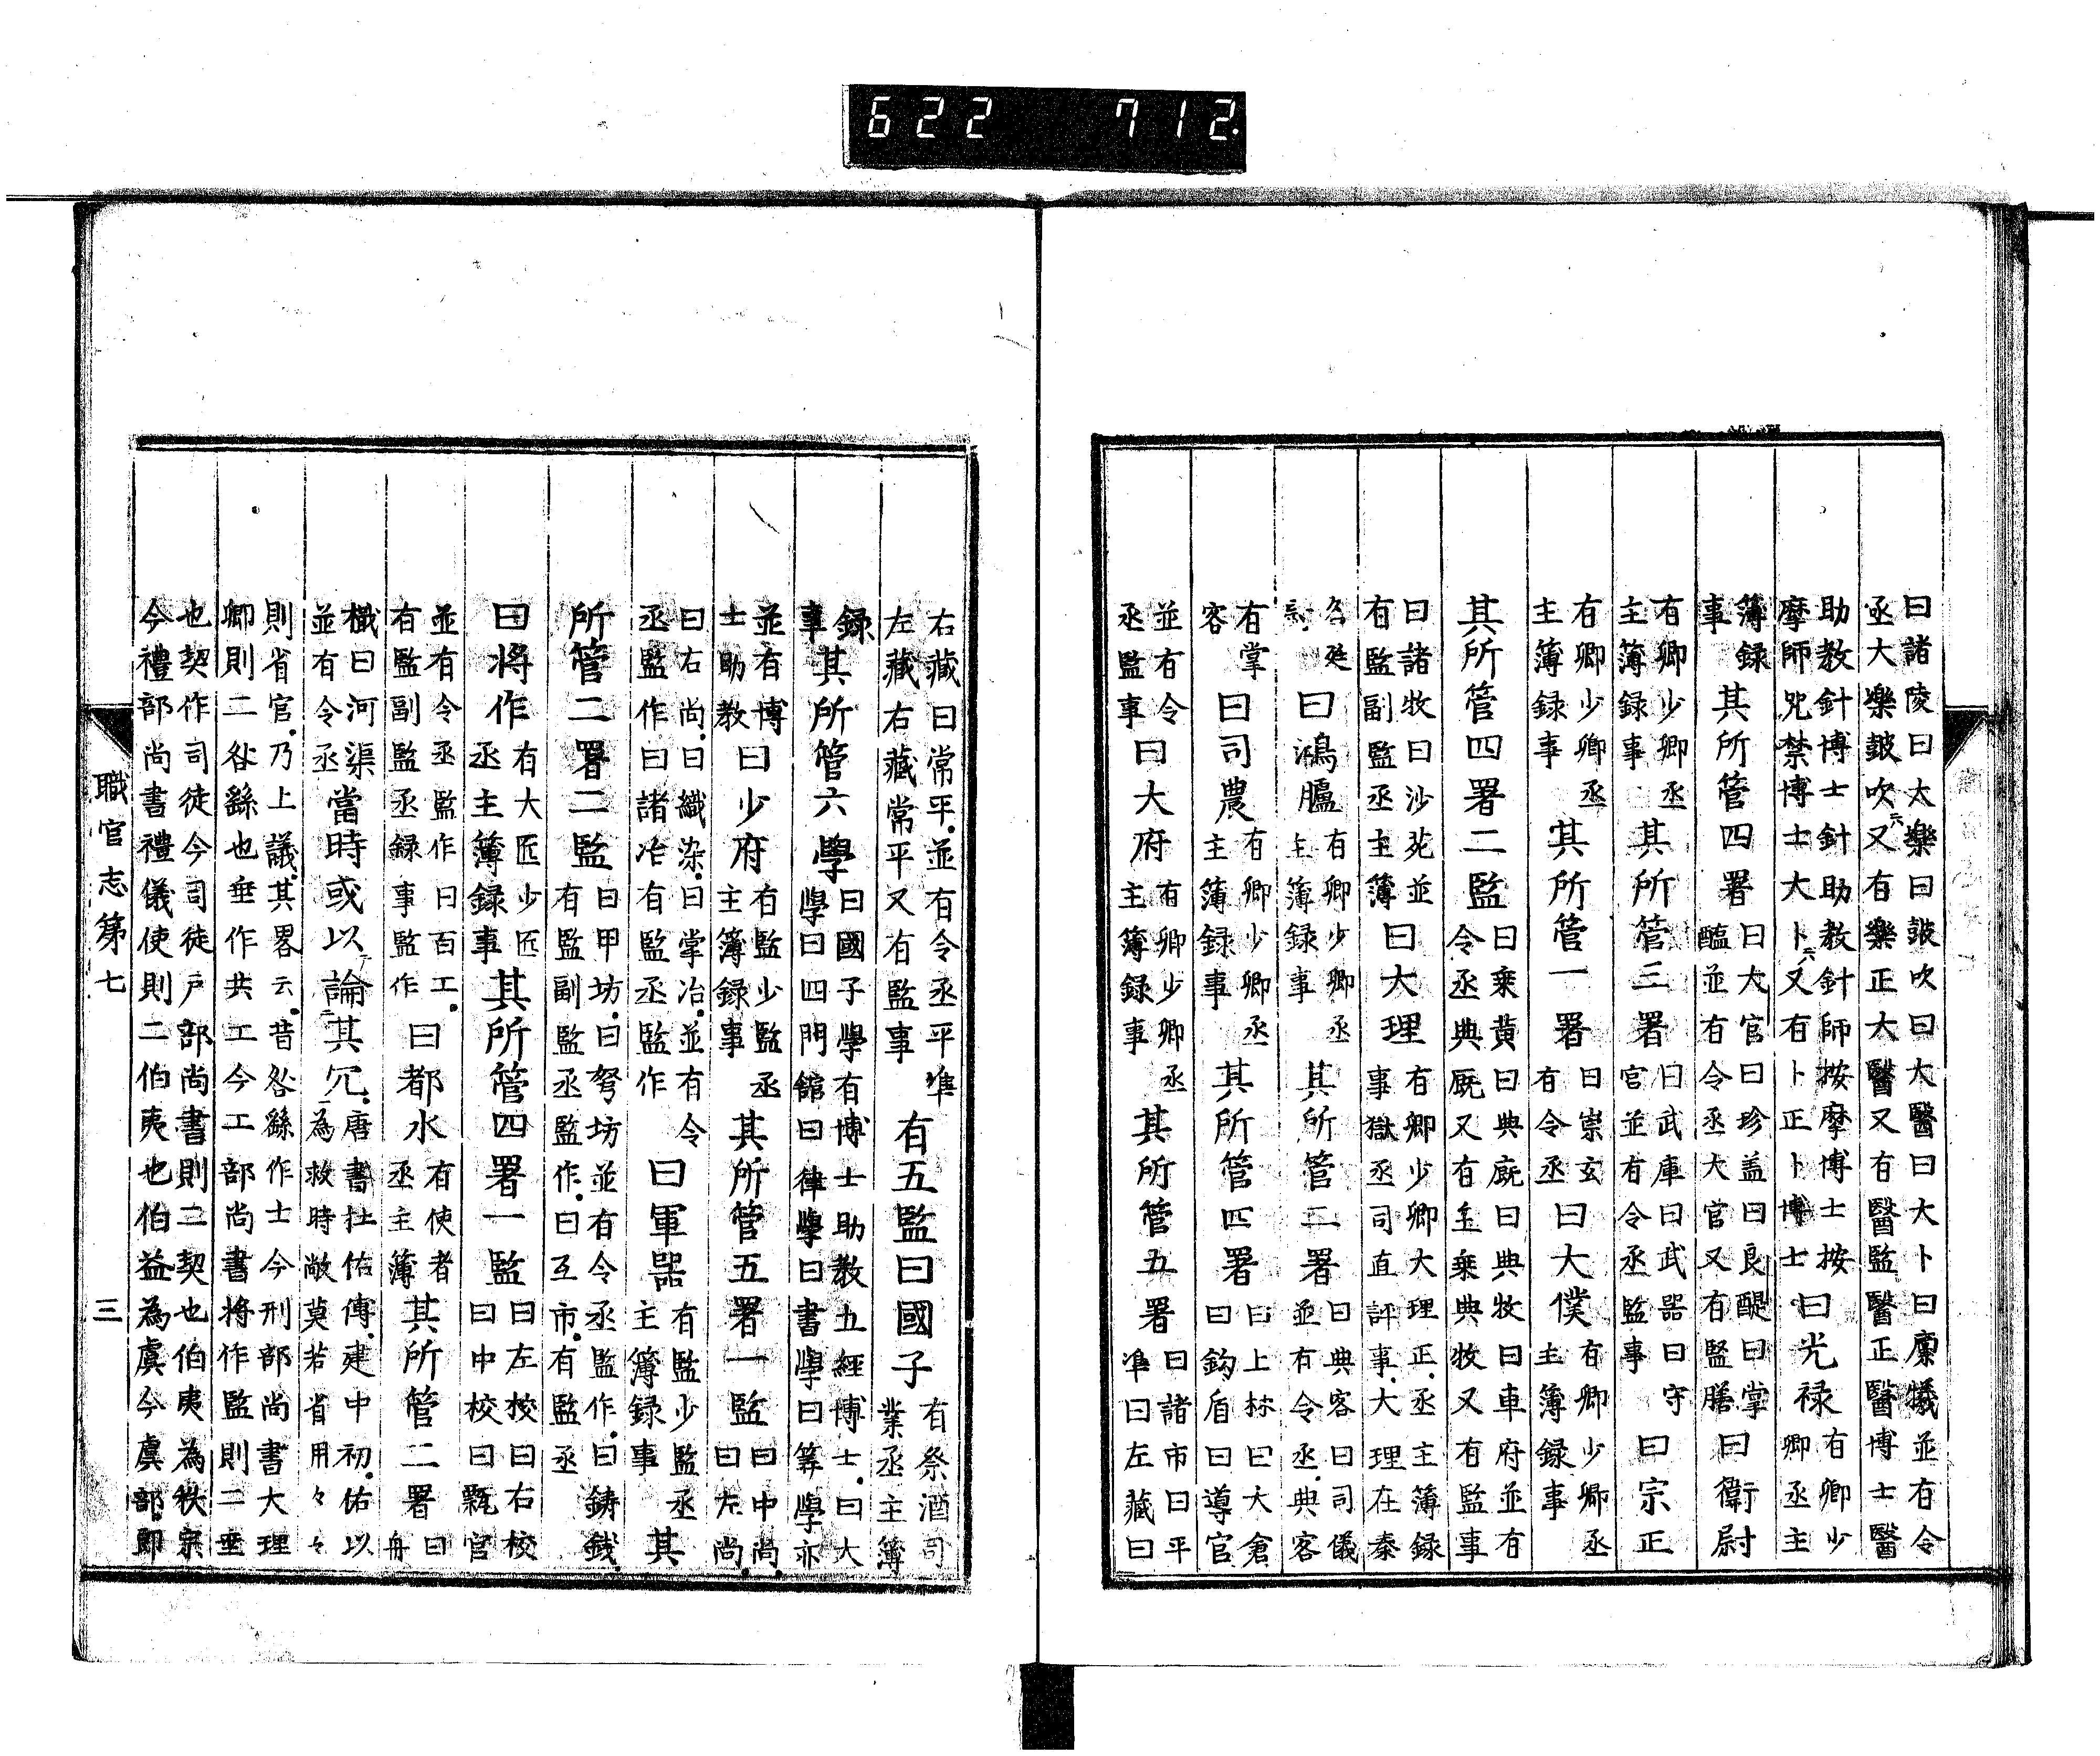 622 712.
曰諸陵曰太樂曰皷吹曰大醫曰大卜曰廩犧並有令
丞大樂皷吹又有樂正大醫又有醫監醫正醫博士醫
助教針博士針助教針師按摩博士按
摩師咒禁博士大卜又有卜正卜博士曰光禄有卿少卿丞主
簿録事其所管四署曰大官曰珍盖曰良醍曰掌醢並有令丞大官又有監膳曰衛尉
有卿少卿丞主簿録事其所管三署曰武庫曰武器曰守官並有令丞監事曰宗正
有卿少卿丞主簿録事其所管一署曰崇玄有令丞曰大僕有卿少卿丞主簿録事
其所管四署二監曰乗黄曰典廐曰典牧曰車府並有令丞典厩又有主乗典牧又有監事
曰諸牧曰沙苑並有監副監丞主簿曰大理有卿少卿大理正丞主簿録事獄丞司直評事大理在秦
名廷曰鴻臚有卿少卿丞主簿録事其所管二署曰典客曰司儀並有令丞典客
有掌客曰司農有卿少卿丞主簿録事其所管四署曰上林曰大倉曰鈎盾曰導官
並有令丞監事曰大府有卿少卿丞主簿録事其所管五署曰諸市曰平準曰左藏曰
右藏曰常平並有令丞平準左藏右藏常平又有監事有五監曰國子有祭酒司業丞主簿
録事其所管六學曰國子學有博士助教五經博士曰大學曰四門館曰律學曰書學曰筭學亦
並有博士助教曰少府有監少監丞主簿録事其所管五署一監曰中尚曰左尚
曰右尚曰織染曰掌冶並有令丞監作曰諸冶有監丞監作曰軍器有監少監丞主簿録事其
所管二署二監曰甲坊曰弩坊並有令丞監作曰鋳銭有監副監丞監作曰互市有監丞
曰将作有大匠少匠丞主簿録事其所管四署一監曰左校曰右校曰中校曰甄官
並有令丞監作曰百工有監副監丞録事監作曰都水有使者丞主簿其所管二署曰舟
檝曰河渠並有令丞當時或以論其冗唐書杜佑傳建中初佑以為救時敞莫若省用々々
則省官乃上議其畧云昔咎繇作士今刑部尚書大理
卿則二咎繇也垂作共工今工部尚書将作監則二垂
也契作司徒今司徒戶部尚書則二契也伯夷為秩宗
今禮部尚書禮儀使則二伯夷也伯益為虞今虞部郎
職官志第七
三